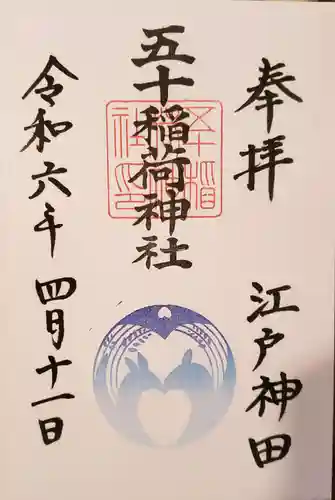 奉拝
江戸神田
五十稲荷神社
令和六年
四月十一日